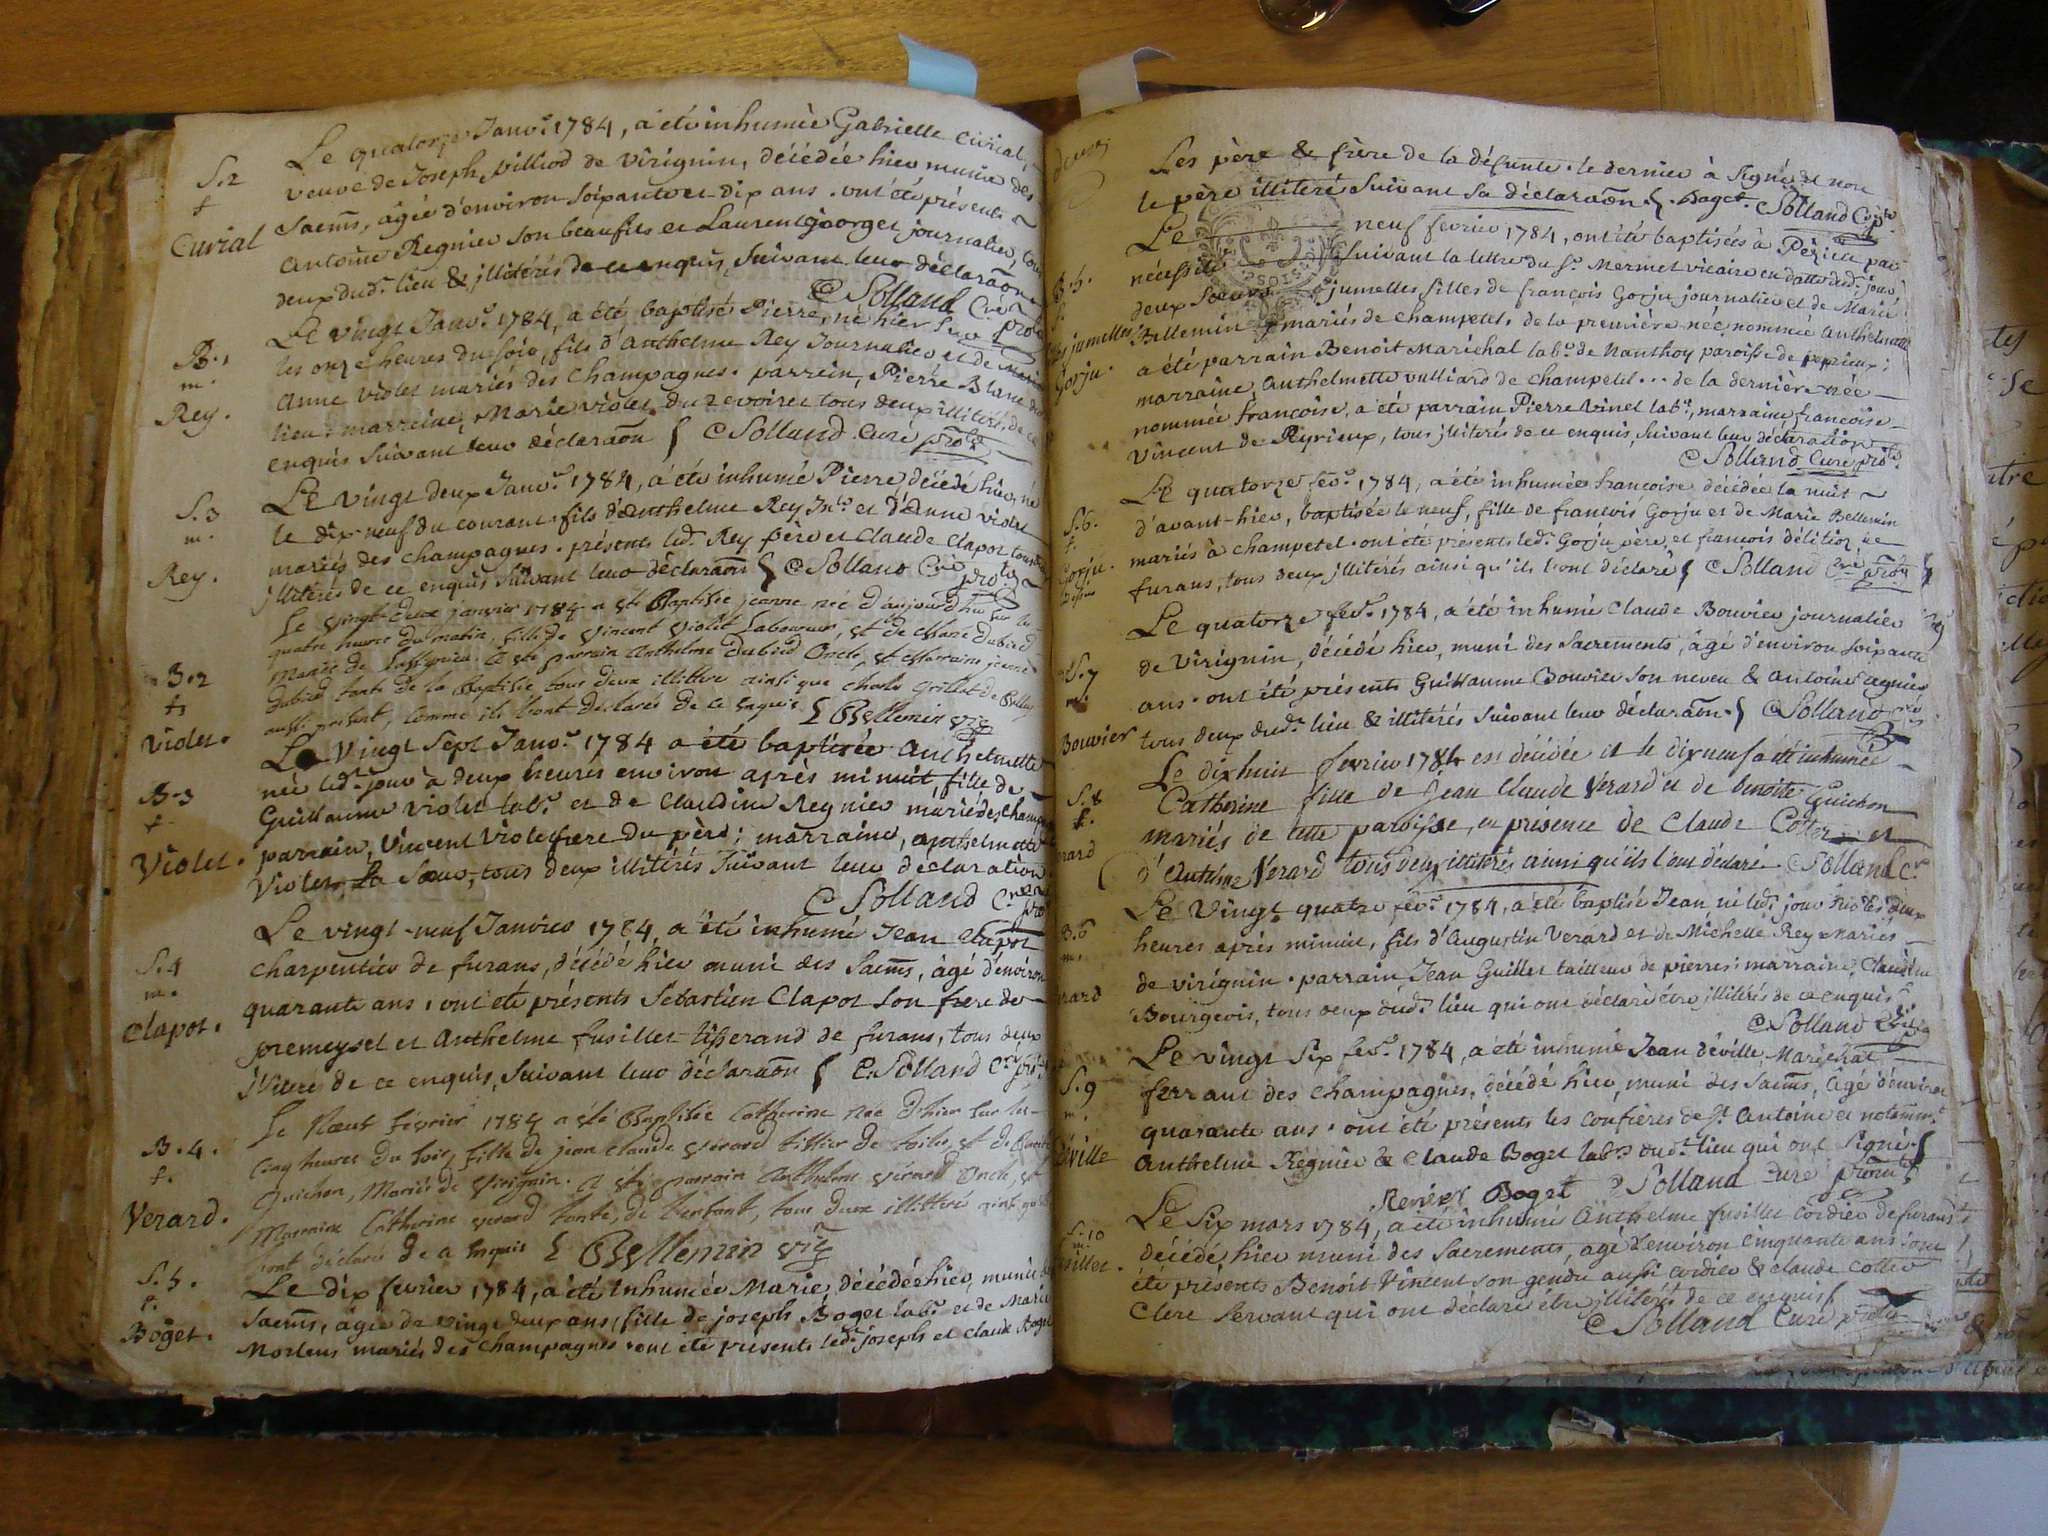 Le quatorze Janv.r 1784, a été inhumée Gabrielle Curial,
S.2
veuve de Joseph Villiod de Virignin, décédée hier munie des
f
Sacm̃s, âgée d'environ soixante et dix ans. ont été présents
Curial
Antoine Regnier son beaufils et Laurent georget journalier, tous
deux dud.t lieu & illitérés de ce enquis, suivant leur déclaraõn
C Solland C.ré pro.te
Le vingt Janv.r 1784, a été baptisé Pierre, né hier sur
B.1
les onze heures du soir, fils d'anthelme Rey Journalier et de Marie
m.
Anne violet mariés des Champagnes. parrein, Pierre Blanc dud.
Rey.
lieu; marreine, Marie violet du revoiret tous deux illitérés, de ce
enquis suivant leur déclaraõn { C Solland Curé pro.te
Le vingt deux Janv.r 1784, a été inhumé Pierre décédé hier, né
S.3
le dix-neuf du courant. fils d'anthelme Rey Jn.er et d'Anne violet
m.
mariés des Champagnes. présents led.t Rey père et Claude Clapot tous deux
Rey.
illitérés de ce enquis suivant leur déclaraõn { C Solland C.ré pro.te
Le vingt-deux janvier 1784 a été Baptisée jeanne née d'aujourd'hui sur les
quatre heures du matin, fille de Vincent Violet Laboureur, et de Marie Dubied
B.2
Mariés de Lassignieu. a été parrain Anthelme Dubied Oncle, et Marraine jeanne
f
Dubied tante de la Baptisée tous deux illitéres ainsi que Charle Grillet de Belley
Violet.
aussi présent, comme ils l'ont déclarés de ce Enquis { Bellemin vic.e
Le Vingt Sept Janv.r 1784 a été baptisée anthelmette
née led.t jour à deux heures environ après minuit, fille de
B.3
Guillaume Violet lab.r et de Claudine Regnier mariés des Champ.
f
parrain, Vincent Violet frere du père; marraine, anthelmette
Violet.
Violet, sa Soeur, tous deux illitérés suivant leur déclaration
C Solland C.ré pro.te
Le vingt-neuf Janvier 1784, a été inhumé Jean Clapot
S.4
charpentier de furans, décédé hier muni des Sacm̃s, âgé d'environ
m.
quarante ans. ont été présents Sébastien Clapot son frere de
Clapot.
premeyzel et Anthelme fusillet tisserand de furans, tous deux
illitéré de ce enquis, suivant leur déclaraõn { C. Solland C.ré pro.te
Le Neuf Février 1784 a été Baptisée Catherine Née d'hier sur les
B.4.
Cinq heures du soir, fille de jean claude Verard tissier de toiles, et de Benoite
f.
Guichon, Mariés de Virignin. a été parrain Anthelme Vérard Oncle, et
Verard.
Marraine Catherine Verard tante, de l'enfant, tous deux illitérés ainsi qu'ils
l'ont déclaré de ce Enquis { Bellemin vic.e
S.5.
Le dix fevrier 1784, a été inhumée Marie, décédée hier, munie des
f.
Sacm̃s, âgée de vingt deux ans, fille de joseph Boget lab.r et de Marie
Boget.
Mortens mariés des Champagnes. ont été présents led.t joseph et claude Boget
Les père & frère de la défunte. le dernier à signé et non
le père illitéré suivant sa déclaraõn. { . Boget. C Solland C.ré p.te
Le neuf fevrier 1784, ont été baptisées à Pézieu par
B.5.
nécessité suivant la lettre du s.r Mermet vicaire en datte dud.t jour
f
deux Soeurs jumelles filles de françois Gorju journalier et de Marie
jumelles
Bellemin mariés de champetel, de la première née nommée anthelmette
Gorju.
a été parrain Benoit Maréchal lab.r de Nanthoy paroisse de peyrieux;
marraine, Anthelmette vulliard de Champetel... de la dernière née
nommée françoise, a été parrain Pierre Vinet lab.r, marraine, françoise
Vincent de Peyrieux, tous illiterés de ce enquis, suivant leur déclaration
C Solland Curé pro.te
Le quatorze fev.r 1784, a été inhumée françoise décédée la nuit
S.6.
d'avant-hier, baptisée le neuf, fille de francois Gorju et de Marie Bellemin
f.
mariés à Champetel. ont été présents led.t Gorju père, et francois
Gorju.
furans, tous deux illitérés ainsi qu'ils l'ont déclaré { C Solland C.ré pro.te
Le quatorze fév.r 1784, a été inhumé Claude Bouvier journalier
S.7
de Virignin, décédé hier, muni des Sacrements, âgé d'environ soixante
m.
ans. ont été présents Guillaume Bouvier son neveu & antoine regnier
Bouvier
tous deux dud.t lieu & illitérés suivant leur déclaraõn. { C Solland
Le dixhuit fevrier 1784 est décédée et le dix neuf a été inhumée
S.8
Catherine fille de Jean Claude Verard et de benoite Guichon
f.
mariés de cette paroisse, en présence de Claude Collet et
Verard
d'Anthelme Verard tous deux illitérés ainsi qu'ils l'ont déclaré C Solland C.r
Le Vingt quatre fev.r 1784, a été baptisé Jean né led.t jour sur les deux
B.6
heures après minuit, fils d'Augustin Verard et de Michelle Rey mariés
m.
de virignin. parrain Jean Guillet tailleur de pierres; marraine, Claudine
Verard
Bourgeois, tous deux dud.t lieu qui ont déclaré être illitérés de ce enquis
C Solland
Le vingt Six fev.r 1784, a été inhumé Jean Déville Maréchal
S.9
ferrant des Champagnes, décédé hier, muni des Sacm̃s, âgé d'environ
m.
quarante ans. ont été présents les confrères de S.t Antoine et notamm.t
Déville
Anthelme Régnier & Claude Boget lab.rs dud.t lieu qui ont signé. {
Renier Boget C Solland Curé pro.te
Le Six mars 1784, a été inhumé Anthelme fusillet cordier de furans
S.10
décédé hier muni des Sacrements, âgé d'environ cinquante ans. ont
m
fusillet.
été présents Benoit Vincent son gendre aussi cordier & claude collet
Clerc servant qui ont déclaré être illitérés de ce enquis {
C Solland Curé pro.te